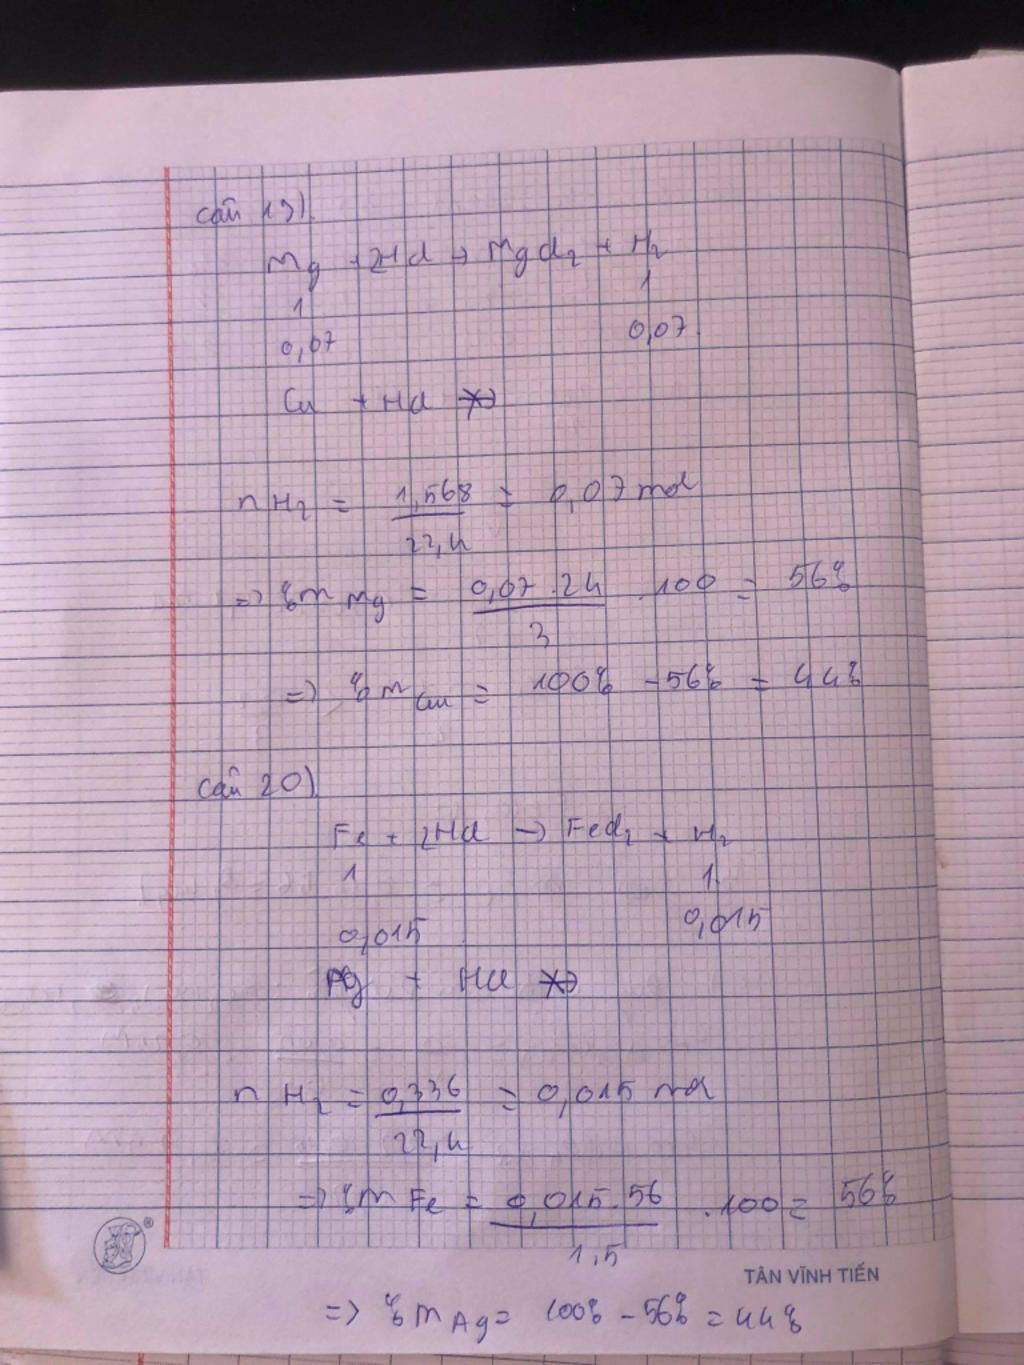 câu 19)
Mg + 2HCl → MgCl2 + H2
1 1
0,07 0,07
Cu + HCl ↛
nH2 = 1,568 / 22,4 = 0,07 mol
=> %m Mg = 0,07 . 24 / 3 . 100 = 56%
=> %m Cu = 100% - 56% = 44%
câu 20)
Fe + 2HCl → FeCl2 + H2
1 1
0,015 0,015
Ag + HCl ↛
n H2 = 0,336 / 22,4 = 0,015 mol
=> %m Fe = 0,015 . 56 / 1,5 . 100 = 56%
®
TÂN VĨNH TIẾN
=> %m Ag = 100% - 56% = 44%